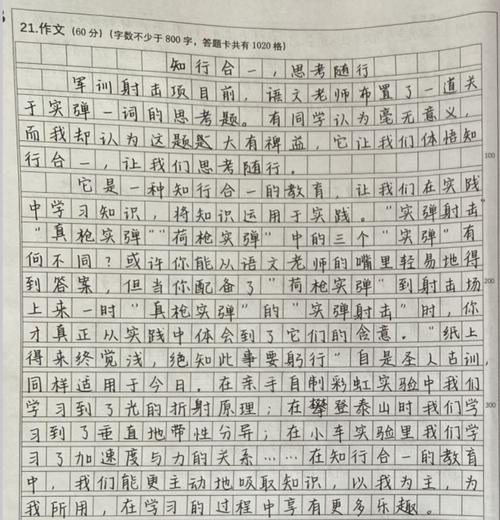 21.作文 (60 分) (字数不少于 800 字，答题卡共有 1020 格)
知行合一，思考随行
军训射击项目前，语文老师布置了一道关
于实弹一词的思考题。有同学认为毫无意义，
而我却认为这题题大有裨益，它让我们体悟知
行合一，让我们思考随行。
100
它是一种知行合一的教育，让我们在实践
中学习知识，将知识运用于实践。“实弹射击”
“真枪实弹”“荷枪实弹”中的三个“实弹”有
何不同？或许你能从语文老师的嘴里轻易地得
到答案，但当你配备了“荷枪实弹”到射击场
200
上来一时“真枪实弹”的“实弹射击”时，你
才真正从实践中体会到了它们的含意。“纸上
得来终觉浅，绝知此事要躬行”自是圣人古训，
同样适用于今日。在亲手自制彩虹实验中我们
学习到了光的折射原理；在攀登泰山时我们学
300
习到了垂直地带性分异；在小车实验里我们学
习了加速度与力的关系……在知行合一的教育
中，我们能更主动地吸取知识，以我为主，为
我所用，在学习的过程中享有更多乐趣。